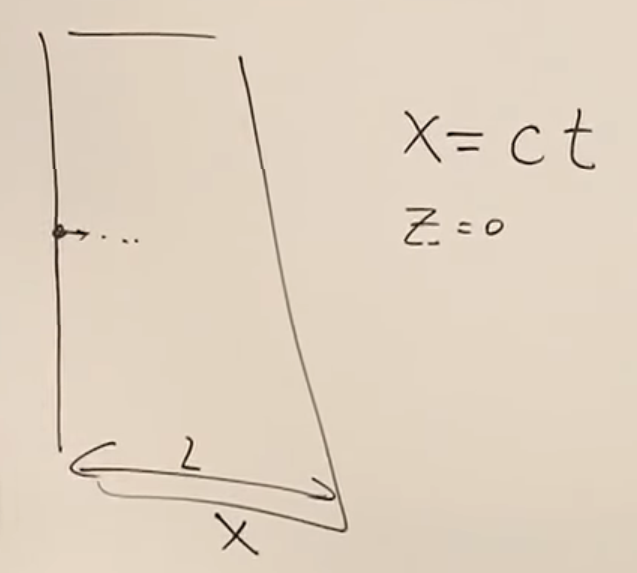 X = ct
Z = 0
L
X